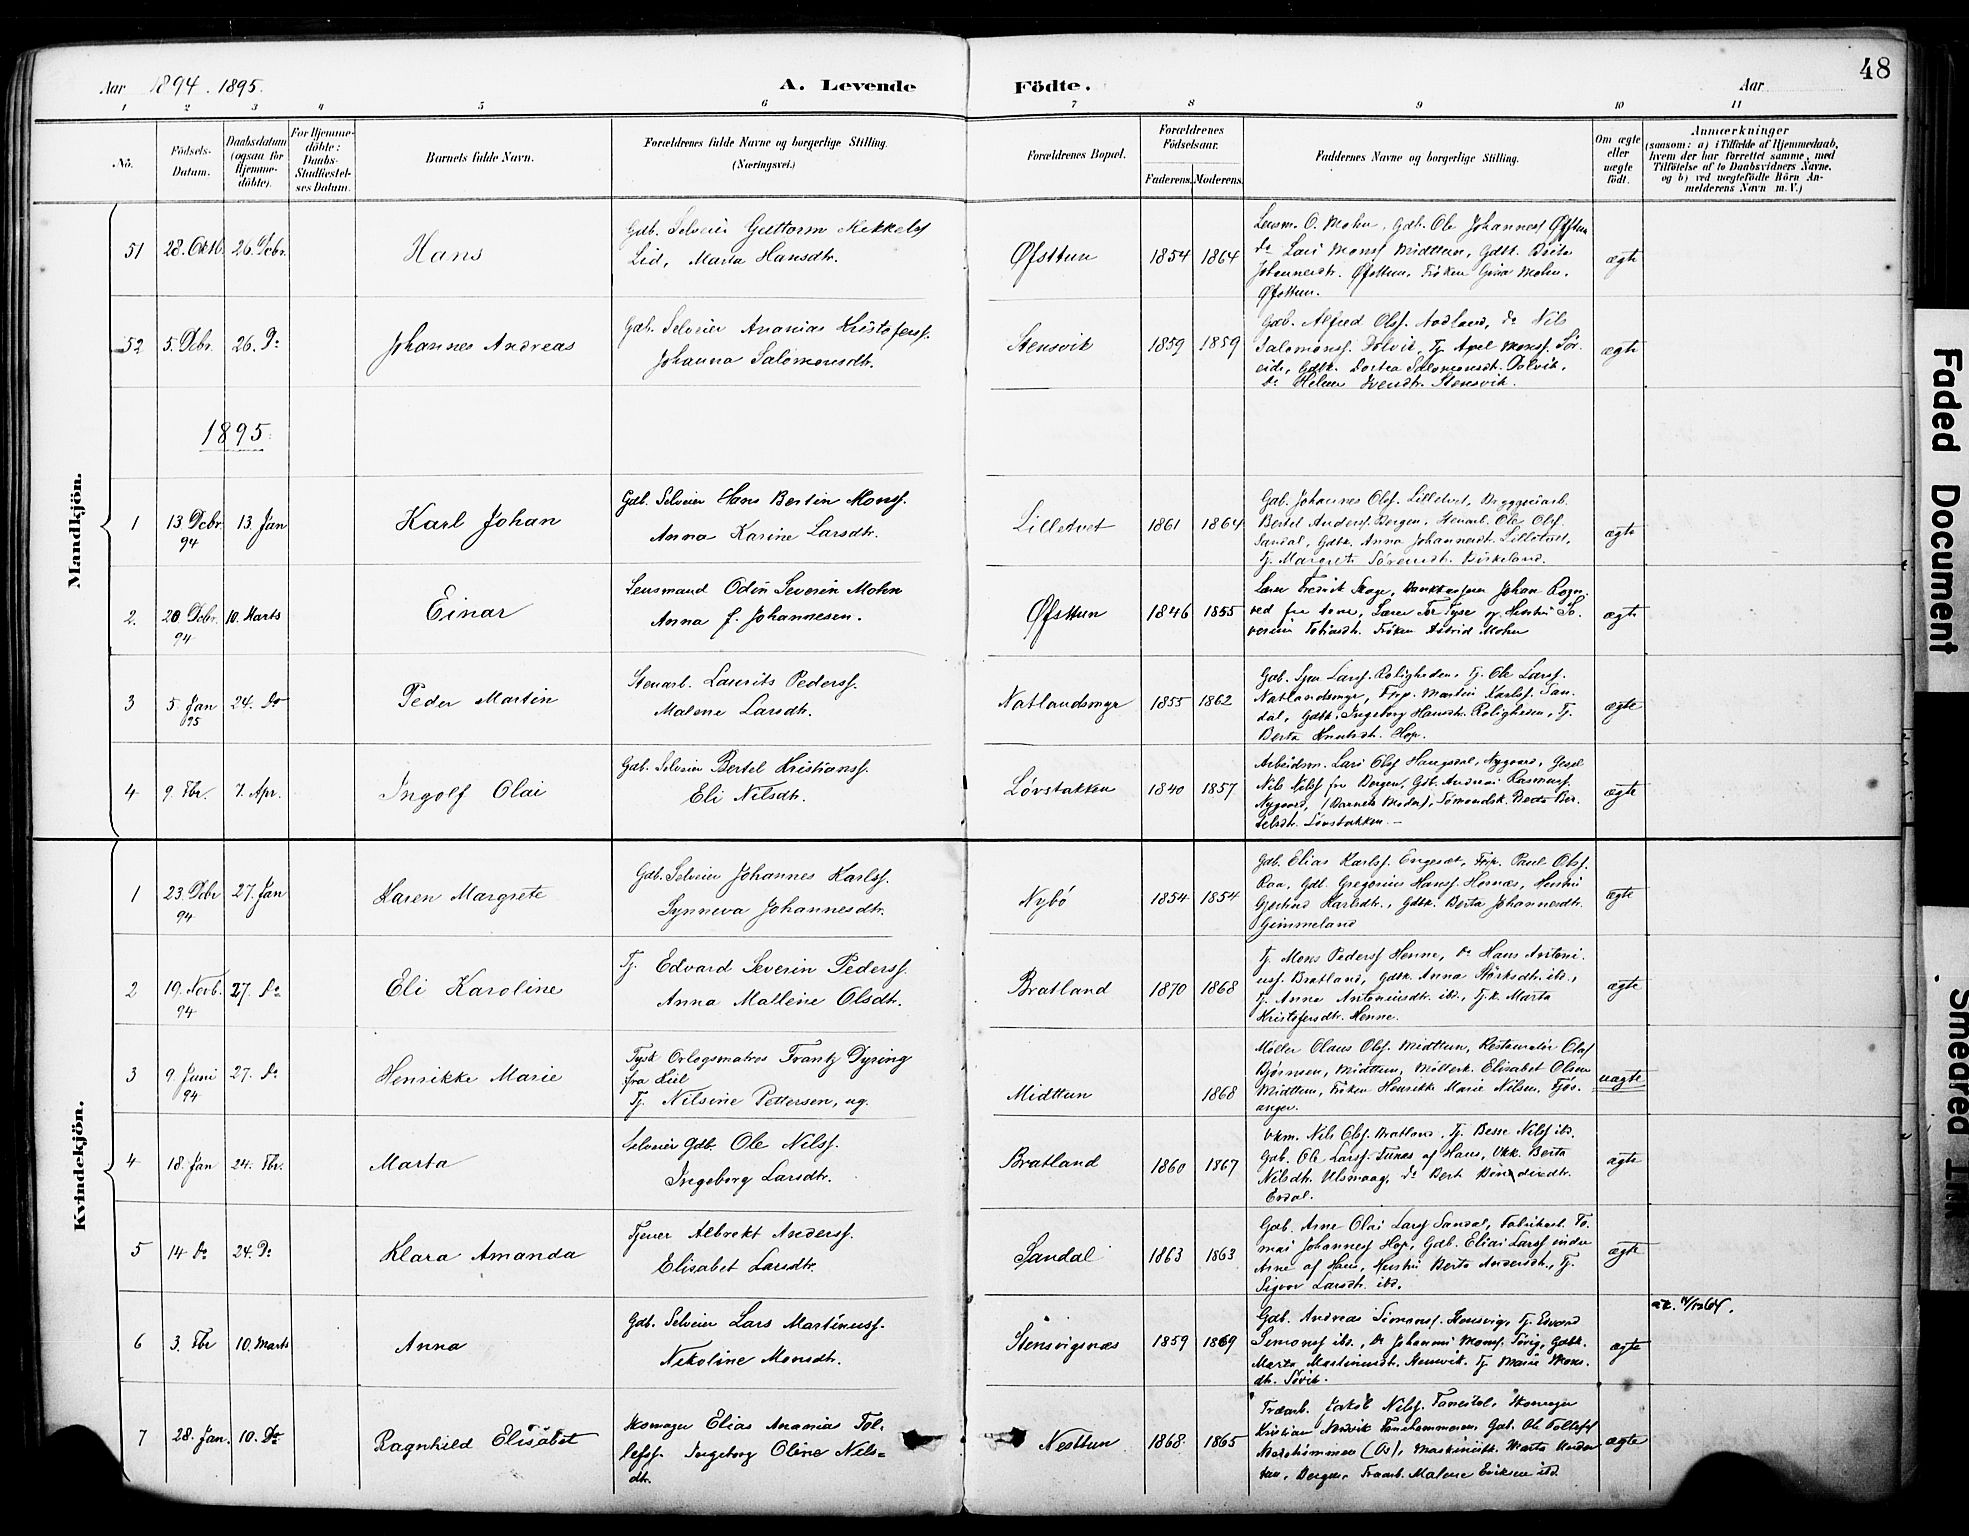 48
Aar 1894. 1895.
A. Levende Födte.
Aar
1 2 3 4 5 6 7 8 9 10 11
No.
Födsels-Datum.
Daabsdatum (ogsaa for Hjemme-döbte).
For Hjemme-döbte: Daabs-Stadfæstel-ses Datum.
Barnets fulde Navn.
Forældrenes fulde Navne og borgerlige Stilling. (Næringsvei.)
Forældrenes Bopæl.
Forældrenes Födselsaar.
Faderens. Moderens.
Faddernes Navne og borgerlige Stilling.
Om ægte eller uægte födt.
Anmærkninger
(saasom: a) i Tilfælde af Hjemmedaab, hvem der har forrettet samme, med Tilföielse af to Daabsvidners Navne, og b) ved uægtefödte Börn An-melderens Navn m. V.)
Mandkjön.
51 28. Oktb. 26. Dcbr. Hans
Gdb. Selveier Guttorm Mikkelsf
Lid, Marta Hansdtr.
Øfsttun 1854 1864
Lensm. O. Mohn, Gdb. Ole Johannesf Øfsttun
do Lars Monsf Midttun, Gdtk. Brita
Johannesdtr. Øfsttun, Frøken Gina Mohn,
Øfsttun.
ægte
52 5. Dcbr. 26. Do Johannes Andreas
Gdb. Selveier Ananias Kristofersf.
Johanna Salomonsdtr.
Stensvik 1859 1859
Gdb. Alfred Olsf. Aadland, do Nils
Salomonsf. Dolvik, Tj. Axel Monsf. Sør-
eide, Gdtk. Dortea Salomonsdt. Dolvik,
do Helene Iversdtr. Stensvik.
ægte
1895.
1 13 Dcbr. 94 13. Jan Karl Johan
Gdb. Selveier Hans Bertin Monsf.
Anna Karine Larsdtr.
Lilletvet 1861 1864
Gdb. Johannes Olsf. Lilletvet, Bryggeriarb.
Bertel Andersf. Bergen, Stenarb. Ole Olsf.
Sandal, Gdtk. Anna Johannesdt. Lilletvet,
Tj. Margrete Sørensdt. Birkeland.
ægte
2. 20 Dcbr. 94 10. Marts Einar
Lensmand Odin Severin Mohn
Anna f. Johannesen.
Øfsttun 1846 1855
Lærer Fredrik Skage, Johan Rogn-
ved fra Arne, Lærer Tor Tyse og Hustru Se-
verine Tobiasdt. Frøken Astrid Mohn
ægte
3 5. Jan 95 24. Do Peder Martin
Stenarb. Laurits Pedersf.
Malene Larsdtr.
Natlandsmyr 1855 1862
Gdb. Larsf. Roligheden, Tj. Ole Larsf.
Natlandsmyr, Frp. Martin Karlsf. San-
dal, Gdtk. Ingeborg Hansdt. Roligheden, Tj.
Berta Knutsdt. Hop.
ægte
4 9. Fbr. 7. Apr. Ingolf Olai
Gdb. Selveier Bertel Kristiansf.
Eli Nilsdtr.
Løvstakken 1840 1857
Arbeidsm. Lars Olsf Haugsdal, Nygaard,
Nils Nilsf fra Bergen, Gdb. Andreas Rasmusf.
Nygaard, (Barnets Moder), Sømandsk. Berta Ber-
telsdtr. Løvstakken. –
ægte
Kvindekjön.
1 23. Dcbr 94 27. Jan Karen Margrete
Gdb. Selveier Johannes Karlsf.
Synneva Johannesdtr.
Nybø 1854 1854
Gdb. Elias Karlsf. Engeset, Frp. Paul Olsf.
Raa, Gdb. Gregorius Hansf. Hornæs, Hustru
Gjertrud Karlsdtr., Gdtk. Berta Johannesdtr.
Gimmeland
ægte
2 19. Novb. 94 27. Do Eli Karoline
Tj. Edvard Severin Pedersf.
Anna Mallene Olsdtr.
Bratland 1870 1868
Tj. Mons Pedersf Henne, do Hans Antoni-
usf. Bratland, Gdtk. Anna Størksdt. ibd.,
Tj. Anna Antoniusdt. ibd., Tj.k. Marta
Kristofersdtr. Henne.
ægte
3 9. Juni 94 27. Do Henrikke Marie
Tysk Orlogsmatros Frantz Dyring
fra Kiel
Tj. Nilsine Pettersen, ug.
Midttun 1868
Møller Olaus Olsf. Midttun, Restauratør Olaf
Bjørnsen, Midttun, Møllerk. Elisabet Olsen
Midttun, Frøken Henrikke Marie Nilsen, Fjøs-
anger.
uægte
4 18. Jan 24. Fbr. Marta
Selveier Gdb. Ole Nilsf.
Ingeborg Larsdtr.
Bratland 1860 1867
Ukm. Nils Olsf. Bratland, Tj. Besse Nilsf ibd.
Gdb. Ole Larsf. Tunes af Haus, Ukk. Berta
Nilsdt. Ulsmaag, do Bert
Erdal.
ægte
5 14 Do 24. Do Klara Amanda
Tjener Albrekt Andersf.
Elisabet Larsdtr.
Sandal 1863 1863
Gdb. Arne Olai Larsf Sandal, Fabrikarb. To-
mas Johannesf Hop, Gdb. Elias Larsf indre
Arne af Haus, Hustru Berta Andersdt., Tj.
Sigvor Larsdt. ibd.
ægte
6 3. Fbr 10. Marts Anna
Gdb. Selveier Lars Martinusf.
Nikoline Monsdt.
Stensvigsnæs 1859 1869
Gdb. Andreas Simonsf. Stensvig, Tj. Edvard
Simonsf ibd., do Johannes Monsf. Søvig, Gdtk.
Marta Martinusdt. Stensvik, Tj. Marie Mons-
dt. Søvik.
ægte
7 28. Jan. 10. Do Ragnhild Elisabet
Skomager Elias Ananias Tol-
lefsf. Ingeborg Oline Nils-
dtr.
Nesttun 1868. 1865
Træarb. Jakob Nilsf. Skomager
Kristian Gdb. Ole Tollefsf
(Os), Maskinistk. Marta
Bergen, Træarb. Malene Eriksen ibd
ægte
Faded Document
Smeared Ink